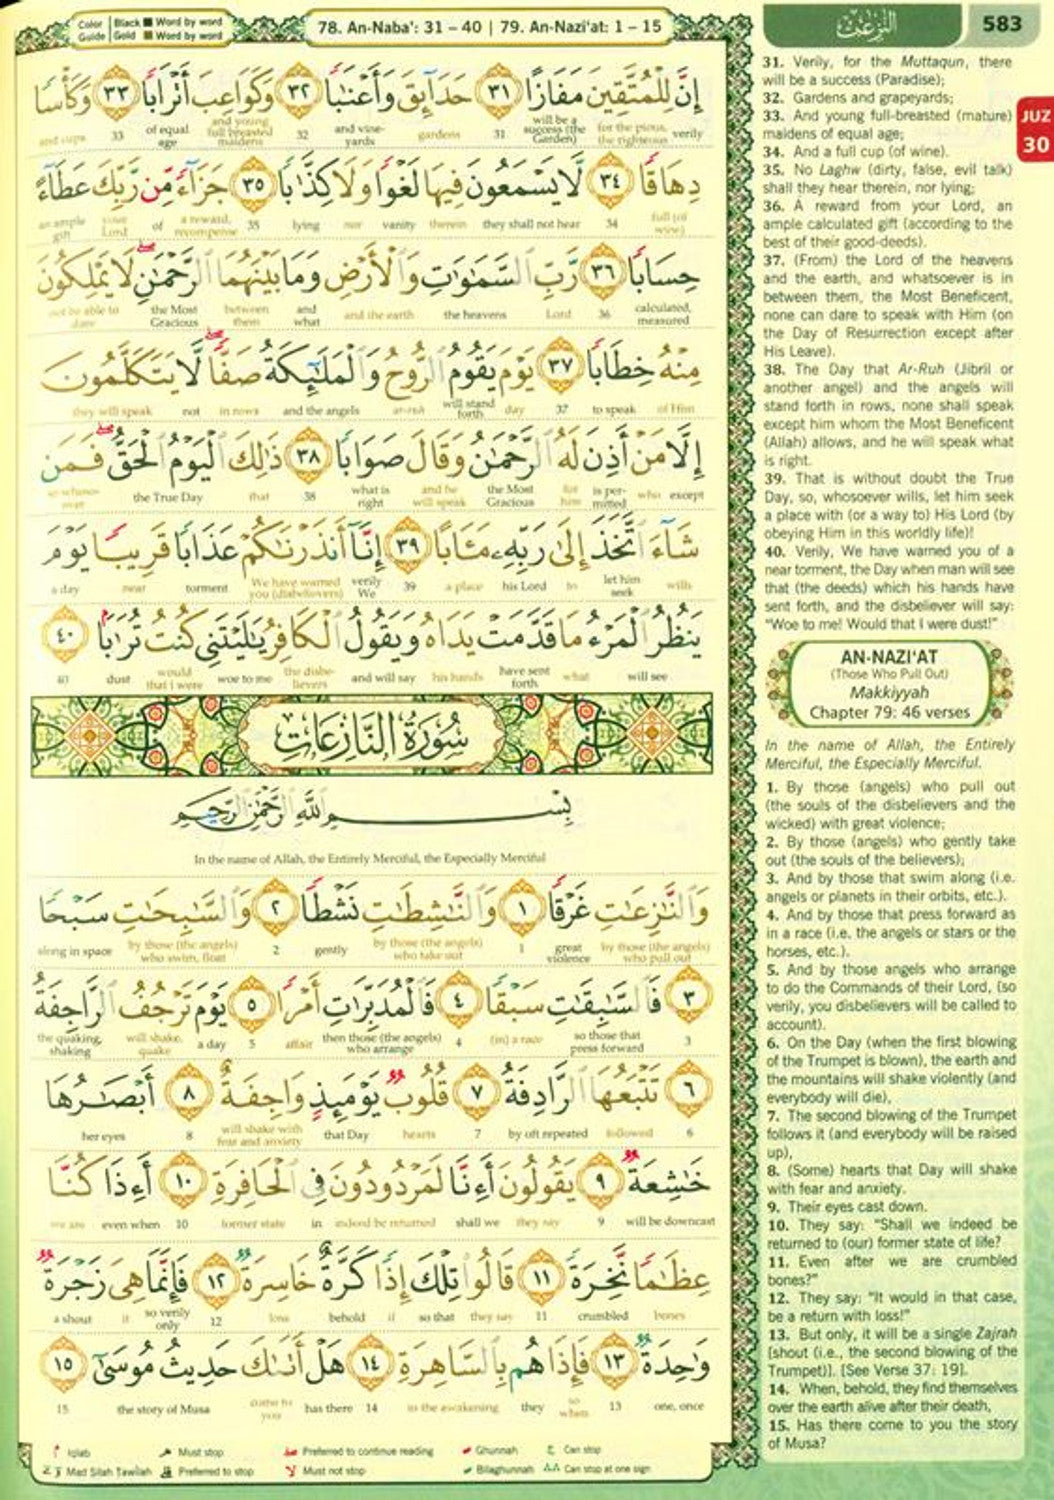 Color Guide Black Word by word Gold Word by word
78. An-Naba': 31 – 40 | 79. An-Nazi'at: 1 – 15
النّٰزِعٰت
583
JUZ 30
إِنَّ لِلْمُتَّقِينَ مَفَازًا ٣١ حَدَآئِقَ وَأَعْنَٰبًا ٣٢ وَكَوَاعِبَ أَتْرَابًا ٣٣ وَكَأْسًا
verily for the pious, the righteous will be a success (the Garden) 31 gardens and vine-yards 32 and young full breasted maidens of equal age 33 and cups
دِهَاقًا ٣٤ لَّا يَسْمَعُونَ فِيهَا لَغْوًا وَلَا كِذَّٰبًا ٣٥ جَزَآءً مِّن رَّبِّكَ عَطَآءً
full (of wine) 34 they shall not hear therein vanity nor lying 35 a reward, recompense of your Lord an ample gift
حِسَابًا ٣٦ رَّبِّ السَّمَٰوَٰتِ وَالْأَرْضِ وَمَا بَيْنَهُمَا الرَّحْمَٰنِ لَا يَمْلِكُونَ
calculated, measured 36 Lord the heavens and the earth and what between them the Most Gracious not be able to dare
مِنْهُ خِطَابًا ٣٧ يَوْمَ يَقُومُ الرُّوحُ وَالْمَلَٰٓئِكَةُ صَفًّا لَّا يَتَكَلَّمُونَ
of Him to speak 37 day will stand forth ar-ruh and the angels in rows not they will speak
إِلَّا مَنْ أَذِنَ لَهُ الرَّحْمَٰنُ وَقَالَ صَوَابًا ٣٨ ذَٰلِكَ الْيَوْمُ الْحَقُّ فَمَن
except who is per-mitted for him the Most Gracious and he will speak what is right 38 that the True Day so whoso-ever
شَآءَ اتَّخَذَ إِلَىٰ رَبِّهِۦ مَـَٔابًا ٣٩ إِنَّآ أَنذَرْنَٰكُمْ عَذَابًا قَرِيبًا يَوْمَ
wills let him seek to his Lord a place 39 verily We We have warned you (disbelievers) torment near a day
يَنظُرُ الْمَرْءُ مَا قَدَّمَتْ يَدَاهُ وَيَقُولُ الْكَافِرُ يَٰلَيْتَنِي كُنتُ تُرَٰبًا ٤٠
will see what have sent forth his hands and will say the disbe-lievers woe to me would that I were dust 40
سُورَةُ النَّازِعَاتِ
بِسْمِ اللَّهِ الرَّحْمَٰنِ الرَّحِيمِ
In the name of Allah, the Entirely Merciful, the Especially Merciful
وَالنَّٰزِعَٰتِ غَرْقًا ١ وَالنَّٰشِطَٰتِ نَشْطًا ٢ وَالسَّٰبِحَٰتِ سَبْحًا
by those (the angels) who pull out great violence 1 by those (the angels) who take out gently 2 by those (the angels) who swim, float along in space
٣ فَالسَّٰبِقَٰتِ سَبْقًا ٤ فَالْمُدَبِّرَٰتِ أَمْرًا ٥ يَوْمَ تَرْجُفُ الرَّاجِفَةُ
3 so those that press forward (in) a race 4 then those (the angels) who arrange affair 5 a day will shake, quake the quaking, shaking
٦ تَتْبَعُهَا الرَّادِفَةُ ٧ قُلُوبٌ يَوْمَئِذٍ وَاجِفَةٌ ٨ أَبْصَٰرُهَا
6 followed by oft repeated 7 hearts that Day will shake with fear and anxiety 8 her eyes
خَٰشِعَةٌ ٩ يَقُولُونَ أَءِنَّا لَمَرْدُودُونَ فِي الْحَافِرَةِ ١٠ أَءِذَا كُنَّا
will be downcast 9 they say shall we indeed be returned in former state 10 even when we are
عِظَٰمًا نَّخِرَةً ١١ قَالُوا تِلْكَ إِذًا كَرَّةٌ خَاسِرَةٌ ١٢ فَإِنَّمَا هِيَ زَجْرَةٌ
bones crumbled 11 they say so that if behold loss 12 so verily only it a shout
وَٰحِدَةٌ ١٣ فَإِذَا هُم بِالسَّاهِرَةِ ١٤ هَلْ أَتَىٰكَ حَدِيثُ مُوسَىٰٓ ١٥
one, once 13 so when they in the awakening 14 has there come to you the story of Musa 15
Iqlab Must stop Preferred to continue reading Ghunnah Can stop
Mad Silah Tawilah Preferred to stop Must not stop Bilaghunnah Can stop at one sign
31. Verily, for the Muttaqun, there
will be a success (Paradise);
32. Gardens and grapeyards;
33. And young full-breasted (mature)
maidens of equal age;
34. And a full cup (of wine).
35. No Laghw (dirty, false, evil talk)
shall they hear therein, nor lying;
36. A reward from your Lord, an
ample calculated gift (according to the
best of their good-deeds).
37. (From) the Lord of the heavens
and the earth, and whatsoever is in
between them, the Most Beneficent,
none can dare to speak with Him (on
the Day of Resurrection except after
His Leave).
38. The Day that Ar-Ruh (Jibril or
another angel) and the angels will
stand forth in rows, none shall speak
except him whom the Most Beneficent
(Allah) allows, and he will speak what
is right.
39. That is without doubt the True
Day, so, whosoever wills, let him seek
a place with (or a way to) His Lord (by
obeying Him in this worldly life)!
40. Verily, We have warned you of a
near torment, the Day when man will see
that (the deeds) which his hands have
sent forth, and the disbeliever will say:
"Woe to me! Would that I were dust!"
AN-NAZI'AT
(Those Who Pull Out)
Makkiyyah
Chapter 79: 46 verses
In the name of Allah, the Entirely
Merciful, the Especially Merciful.
1. By those (angels) who pull out
(the souls of the disbelievers and the
wicked) with great violence;
2. By those (angels) who gently take
out (the souls of the believers);
3. And by those that swim along (i.e.
angels or planets in their orbits, etc.).
4. And by those that press forward as
in a race (i.e. the angels or stars or the
horses, etc.).
5. And by those angels who arrange
to do the Commands of their Lord, (so
verily, you disbelievers will be called to
account).
6. On the Day (when the first blowing
of the Trumpet is blown), the earth and
the mountains will shake violently (and
everybody will die),
7. The second blowing of the Trumpet
follows it (and everybody will be raised
up),
8. (Some) hearts that Day will shake
with fear and anxiety.
9. Their eyes cast down.
10. They say: "Shall we indeed be
returned to (our) former state of life?
11. Even after we are crumbled
bones?"
12. They say: "It would in that case,
be a return with loss!"
13. But only, it will be a single Zajrah
[shout (i.e., the second blowing of the
Trumpet)]. [See Verse 37: 19].
14. When, behold, they find themselves
over the earth alive after their death,
15. Has there come to you the story
of Musa?